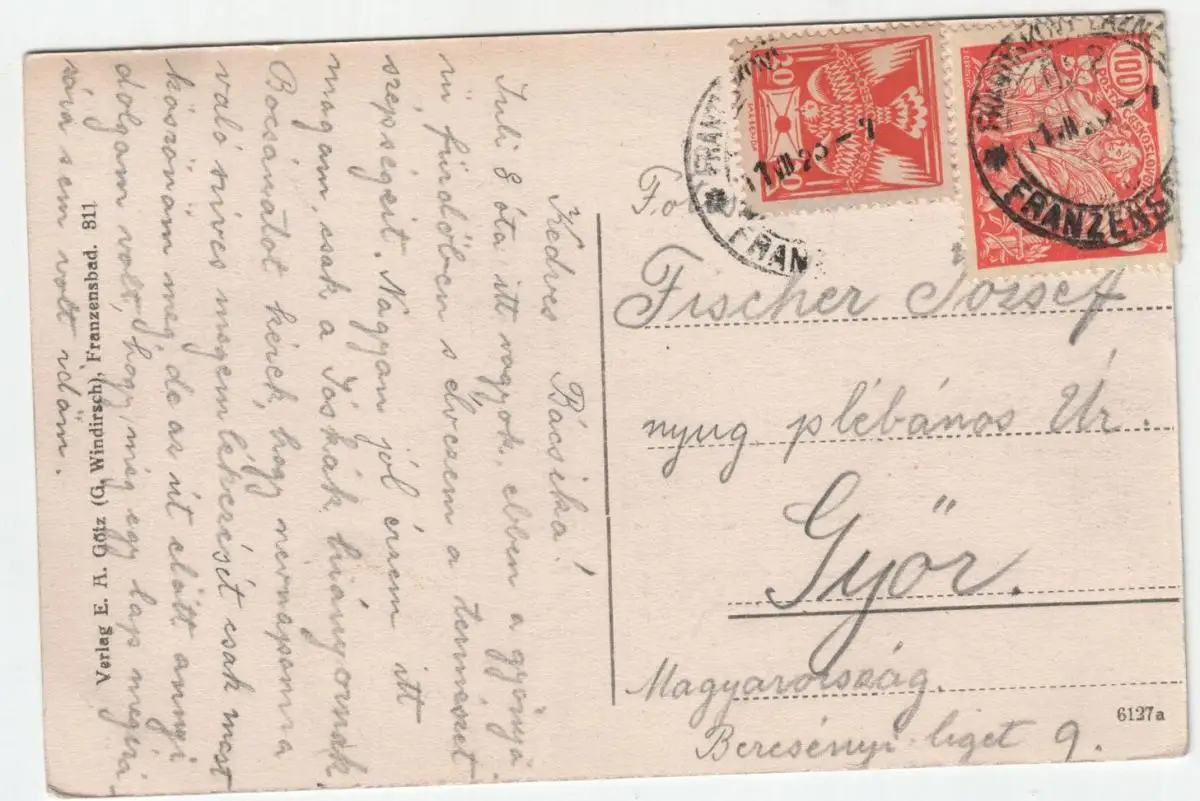 Kedves Bácsika!
Juli 8 óta itt vagyok, ebben a gyönyö-
rü fürdőben s élvezem a természet
szépségeit. Nagyon jól érzem itt
magam, csak a Jóskák hiányoznak
Bocsánatot kérek, hogy névnapomra
való szíves megemlékezését csak most
köszönöm meg, de az út előtt annyi
dolgom volt, hogy még egy lap megírá-
sára sem volt időm.
Verlag E. A. Götz (G. Windirsch), Franzensbad. 811
20
20
100
POŠTA ČESKOSLOVENSKÁ
FRANZENSBAD
Fischer József
nyug. plébános Úr.
Győr.
Magyarország.
Bercsényi liget 9.
6127a